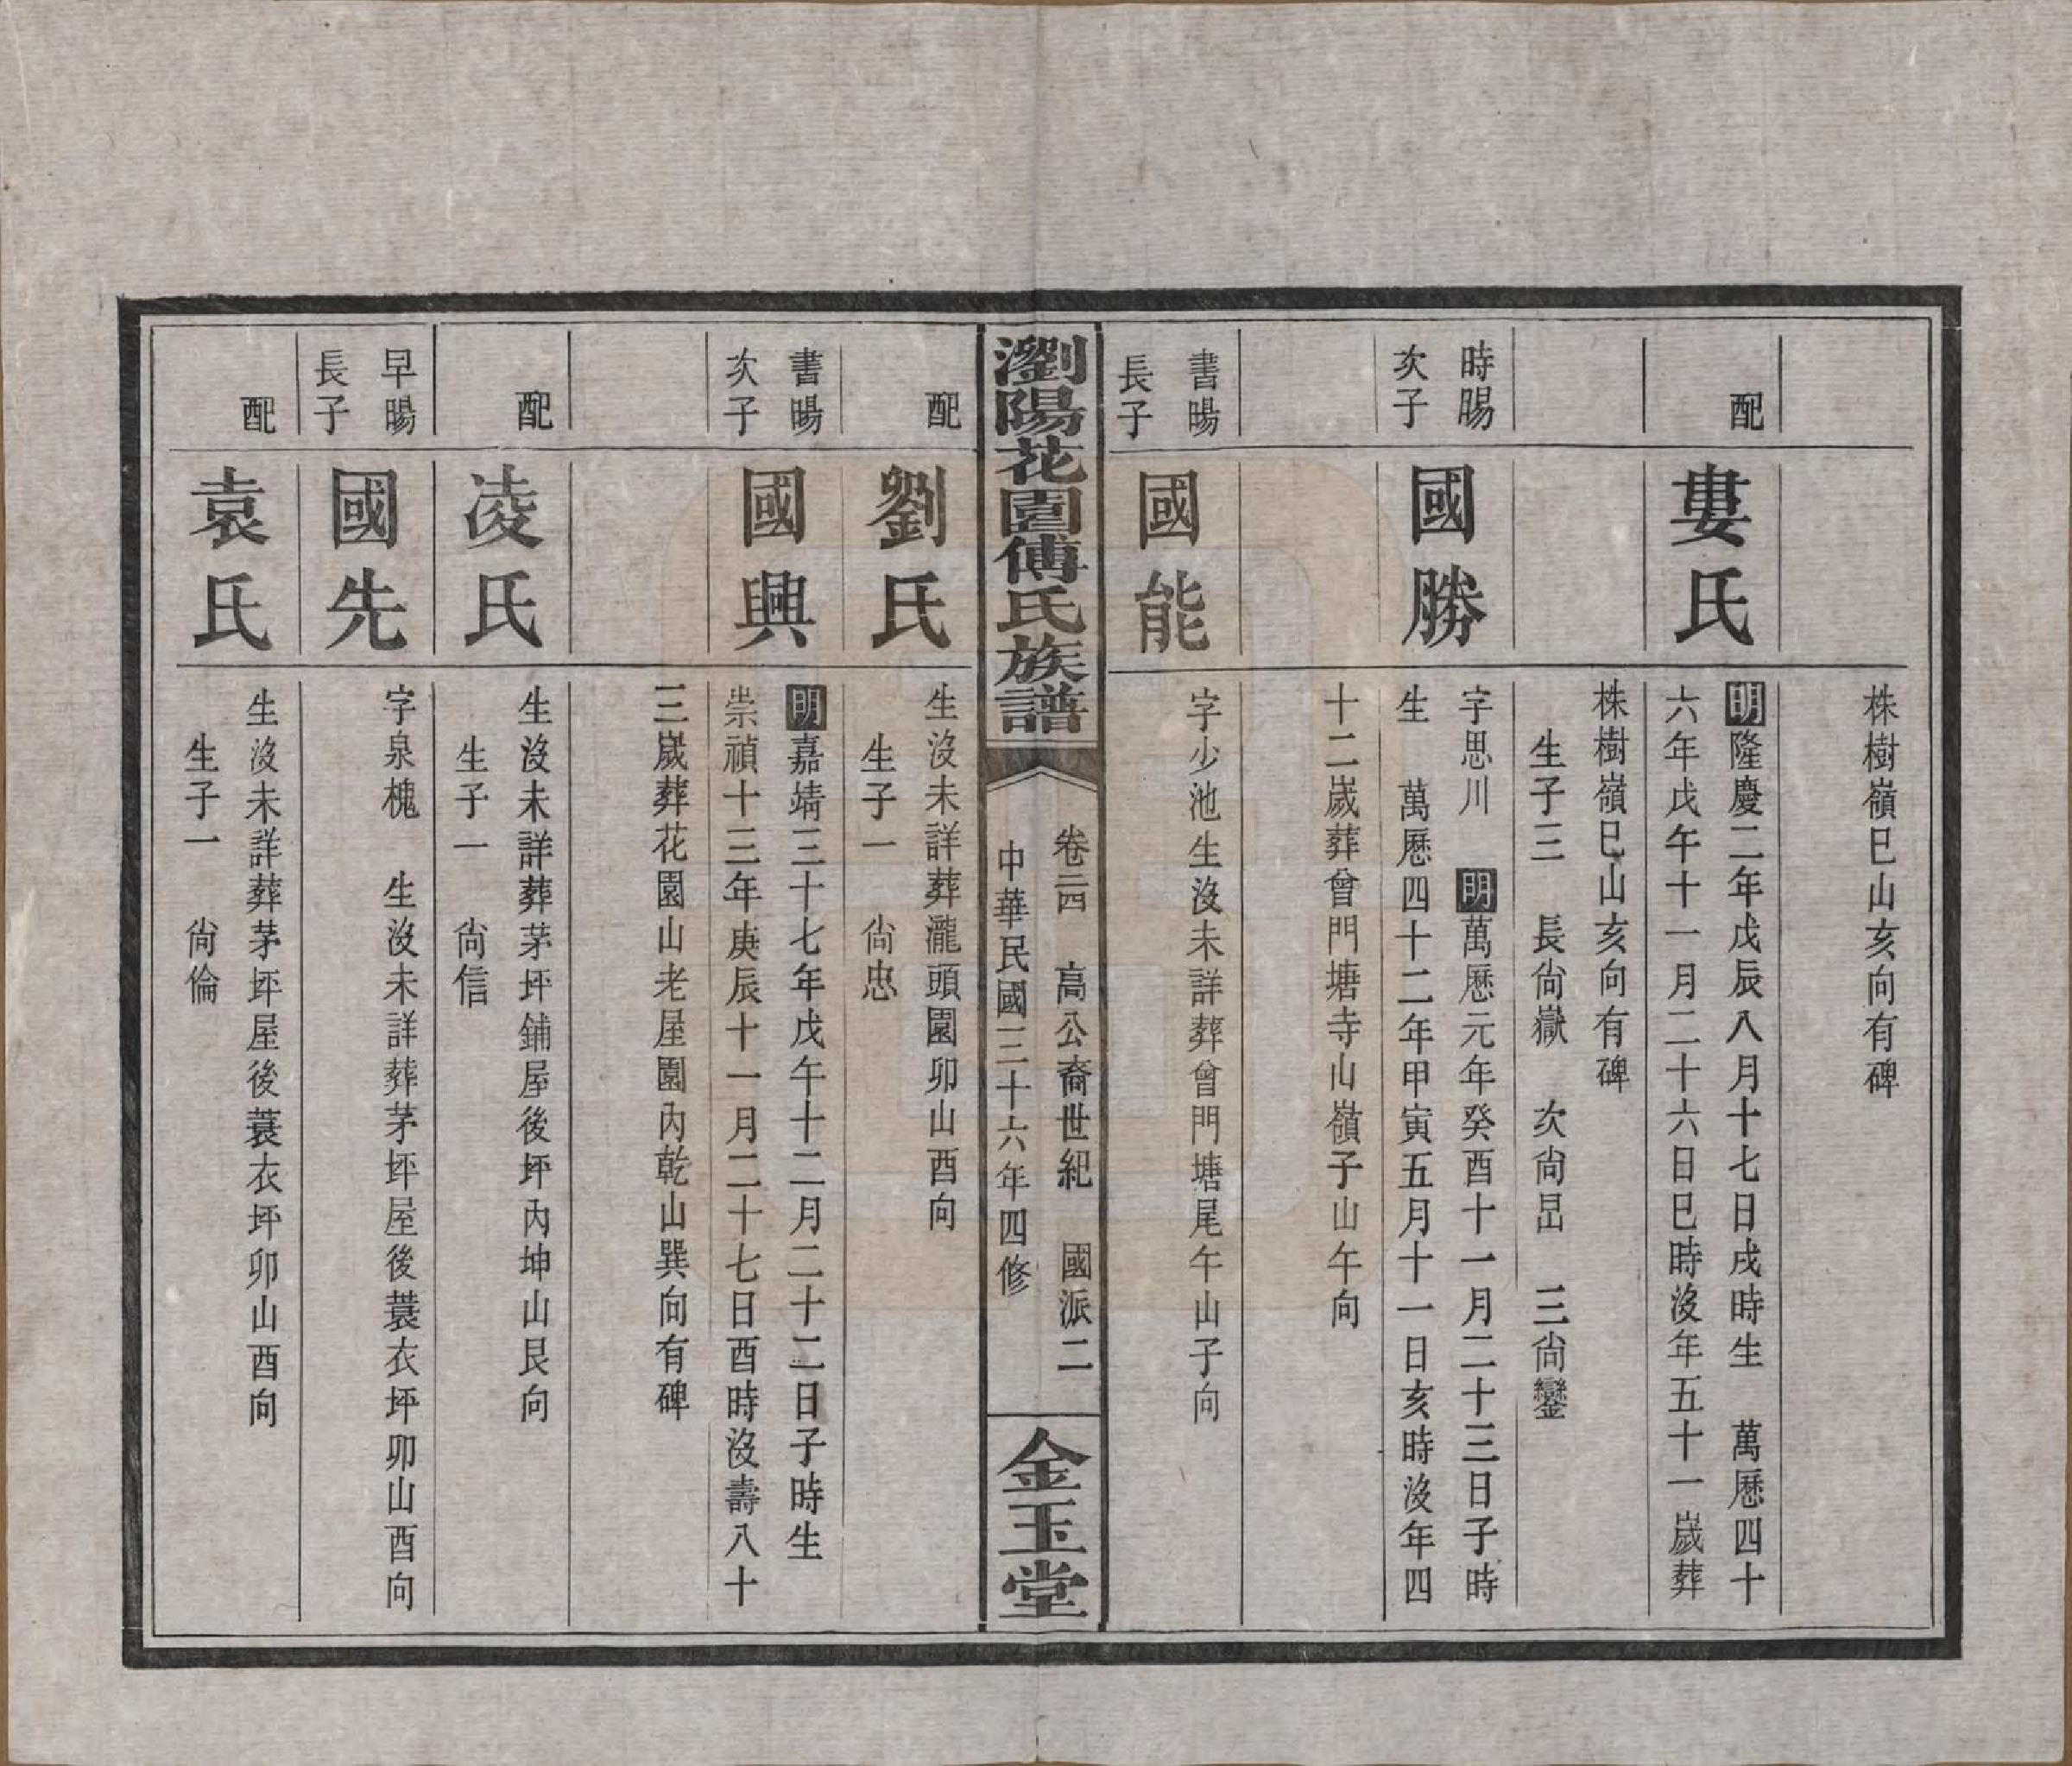 株樹嶺巳山亥向有碑
配
婁氏
明隆慶二年戊辰八月十七日戌時生　萬厯四十
六年戊午十一月二十六日巳時沒年五十一歲葬
株樹嶺巳山亥向有碑
生子三　長尙嶽　次尙岊　三尙鑾
時暘
次子
國勝
字思川　明萬厯元年癸酉十一月二十三日子時
生　萬厯四十二年甲寅五月十一日亥時沒年四
十二歲葬曾門塘寺山嶺子山午向
書暘
長子
國能
字少池生沒未詳葬曾門塘尾午山子向
瀏陽花園傅氏族譜
卷二四　高公裔世紀　國派二
中華民國三十六年四修
金玉堂
配
劉氏
生沒未詳葬瀧頭園卯山酉向
生子一　尙忠
書暘
次子
國興
明嘉靖三十七年戊午十二月二十二日子時生
崇禎十三年庚辰十一月二十七日酉時沒壽八十
三歲葬花園山老屋園內乾山巽向有碑
配
凌氏
生沒未詳葬茅坪鋪屋後坪內坤山艮向
生子一　尙信
早暘
長子
國先
字泉槐　生沒未詳葬茅坪屋後蓑衣坪卯山酉向
配
袁氏
生沒未詳葬茅坪屋後蓑衣坪卯山酉向
生子一　尙倫